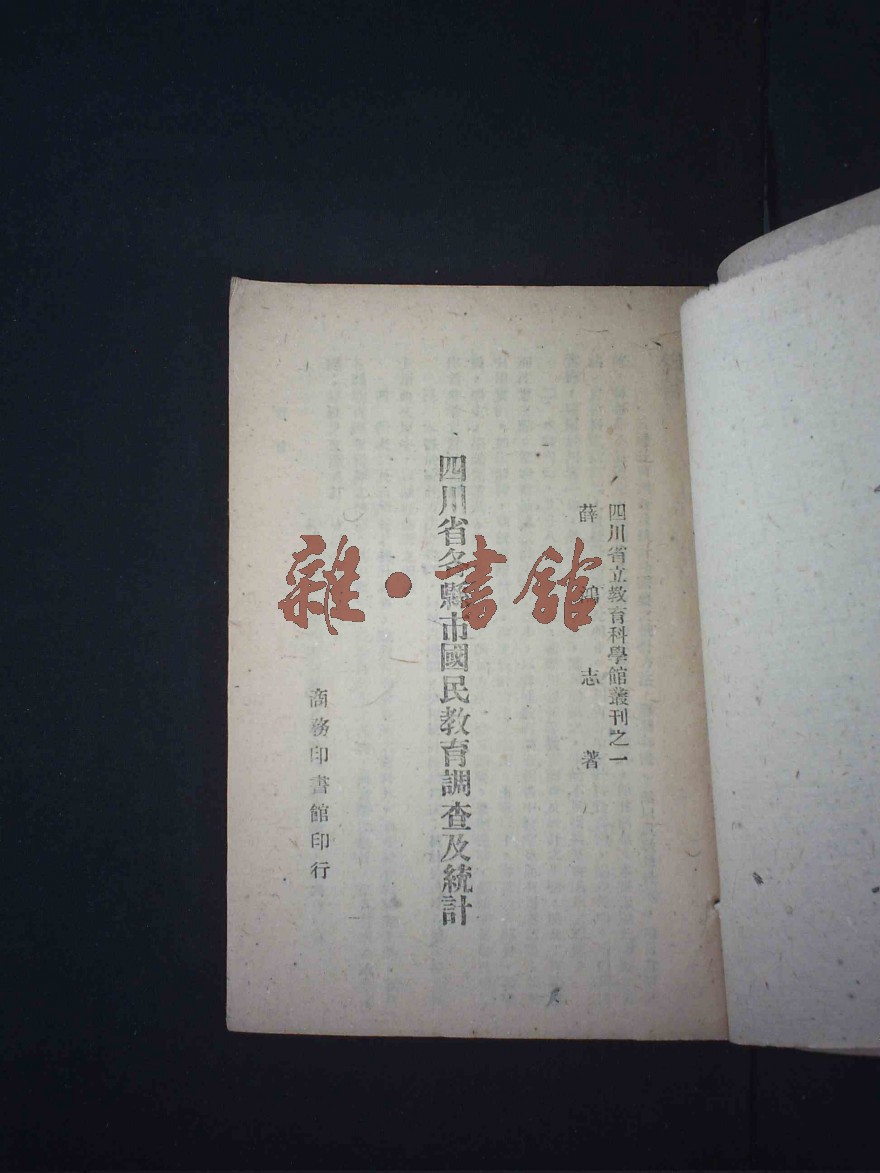 四川省立教育科學館叢刊之一
薛鴻志著
四川省各縣市國民教育調查及統計
商務印書館印行
雜·書館